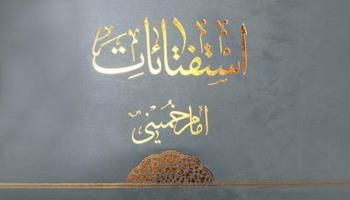 استفتائات
امام خمینی